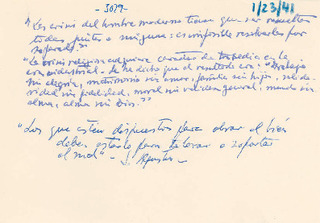 - 3029 -
1/23/41
"Las crisis del hombre moderno tienen que ser resueltas
todas juntas o ninguna: es imposible resolverlas por
separado."
"La crisis religiosa adquiere caracteres de tragedia en la
era industrial. Se ha dicho que el resultado es: "Trabajo
sin alegría, matrimonio sin amor, familia sin hijos,
sin finalidad, moral sin validez general, mundo sin
alma, alma sin Dios."
"Los que esten dispuestos para obrar el bién
deben estarlo para tolerar o soportar
el mal" - S. Agustín -